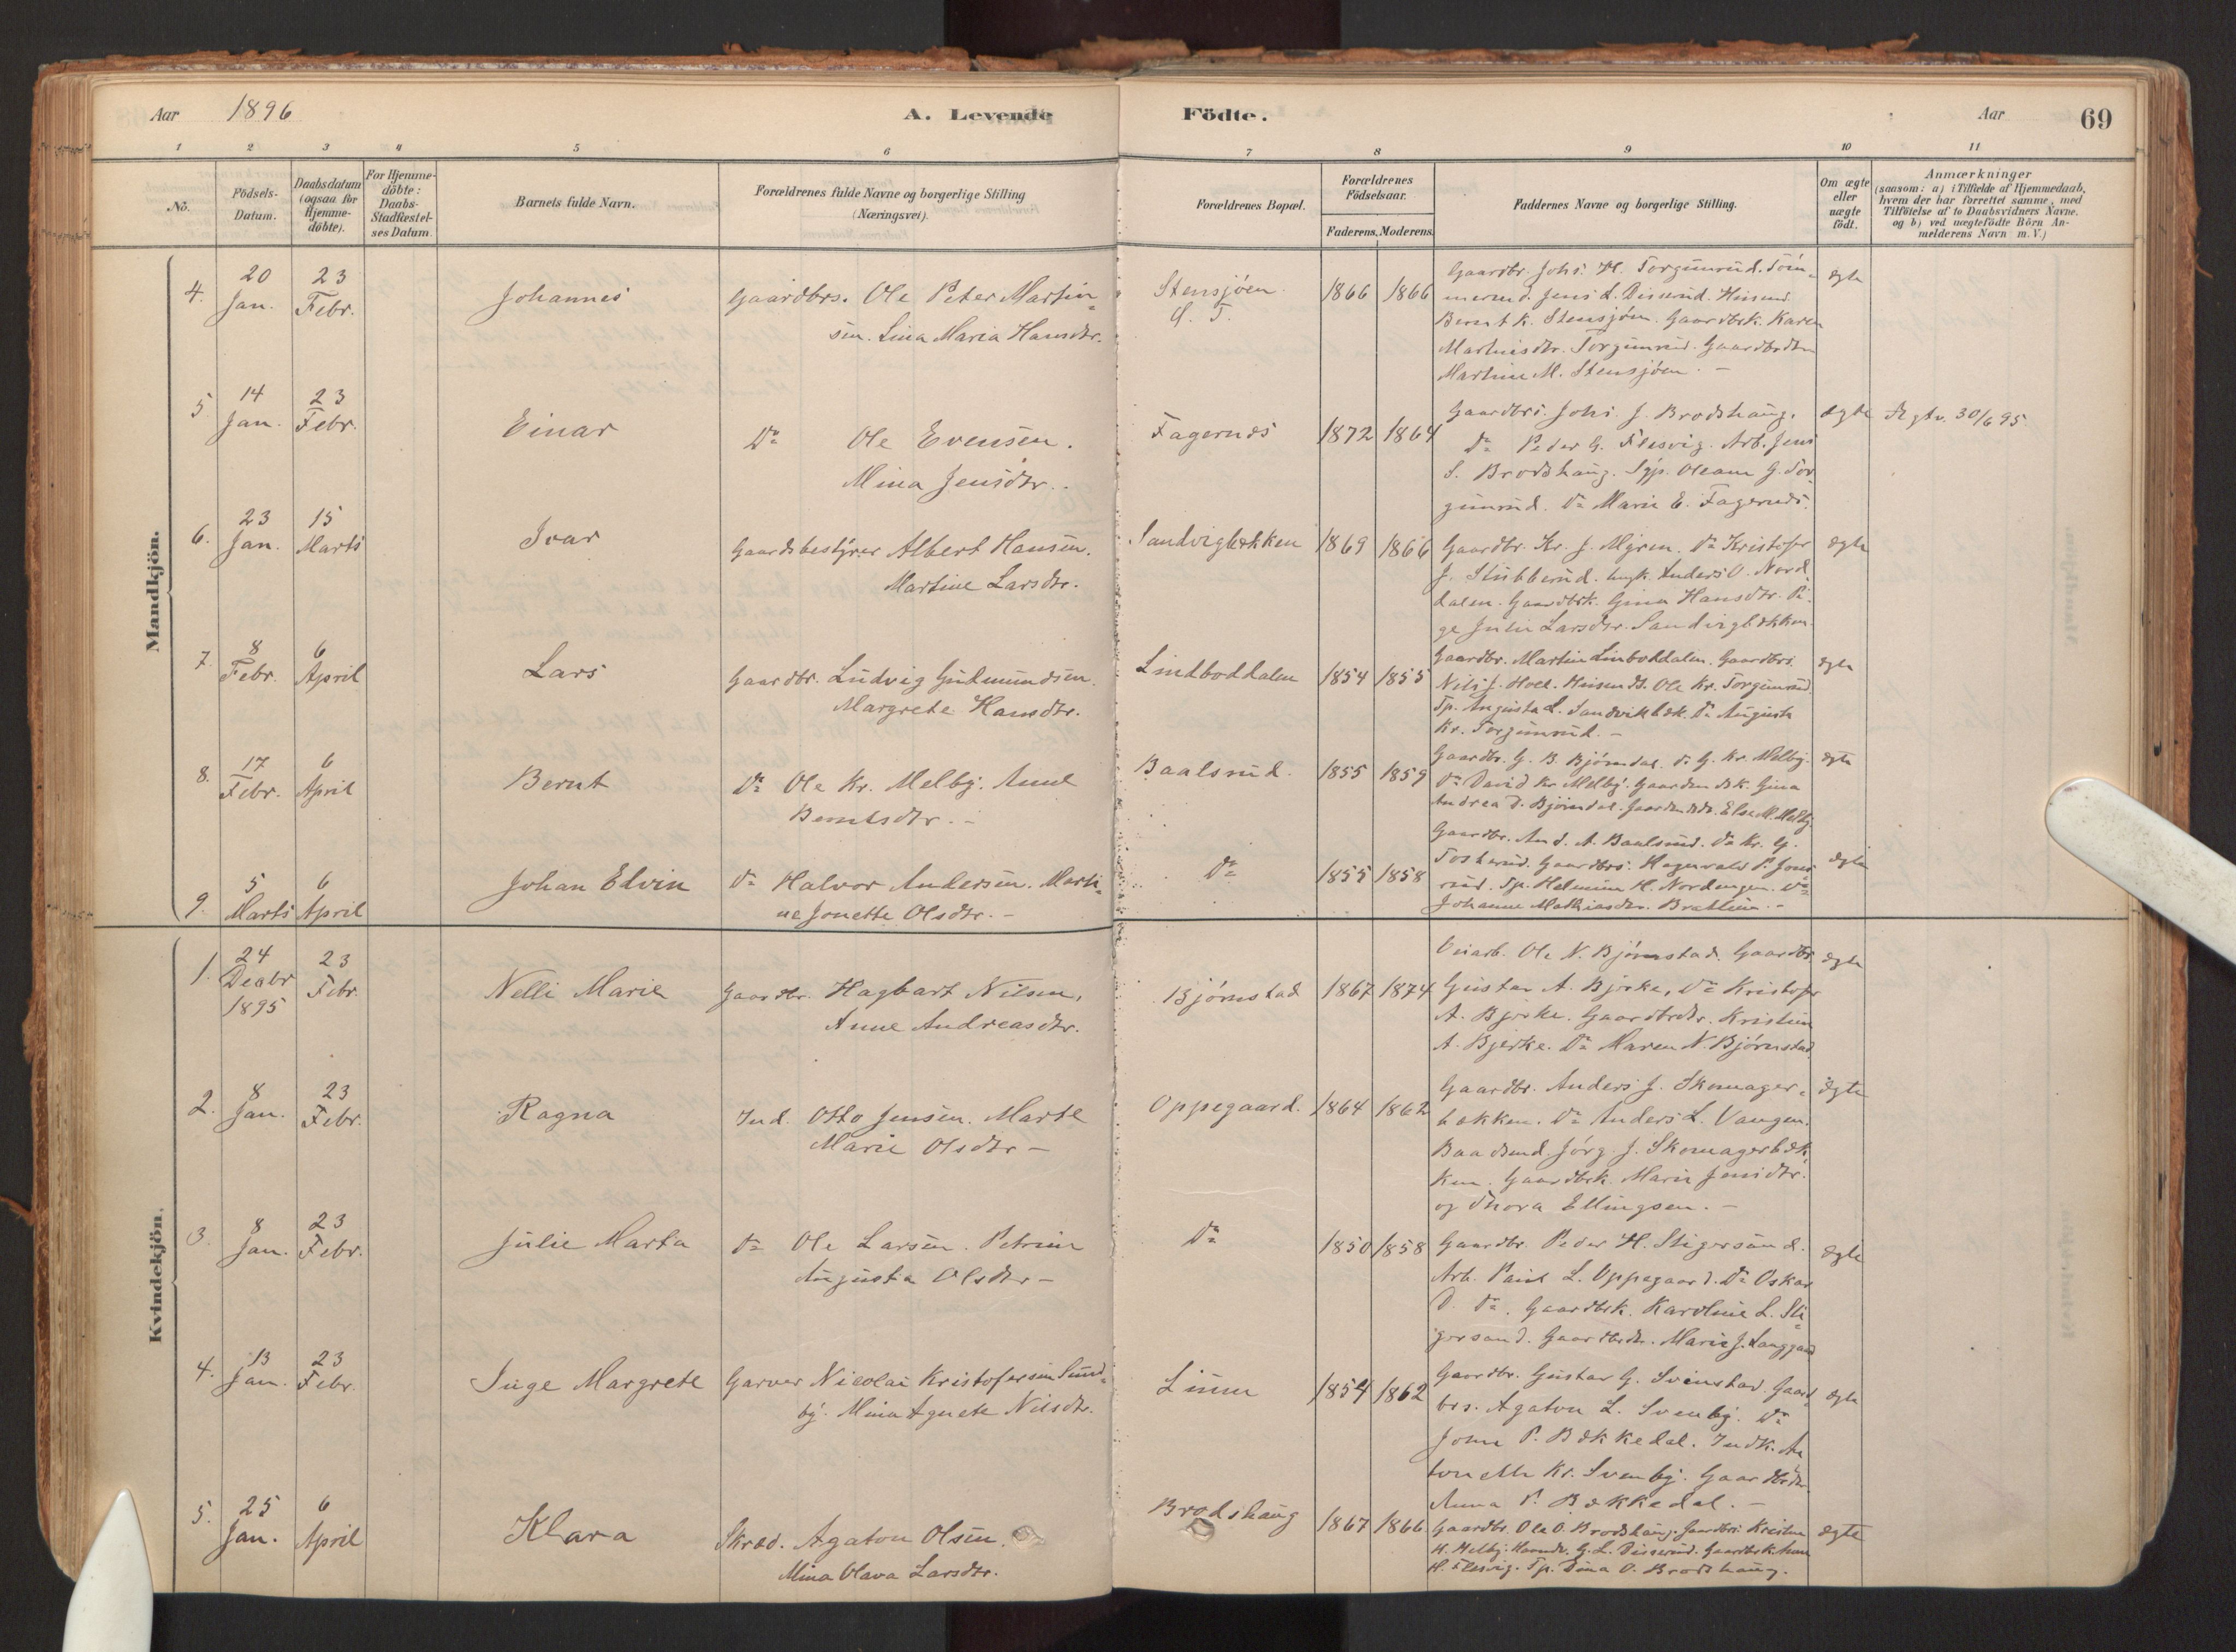 Aar 1896 A. Levende Födte. Aar 69
1 2 3 4 5 6 7 8 9 10 11
No. Födsels-Datum. Daabsdatum (ogsaa for Hjemmedöbte). For Hjemmedöbte: Daabs-Stadfæstelses Datum. Barnets fulde Navn. Forældrenes fulde Navne og borgerlige Stilling (Næringsvei). Forældrenes Bopæl. Forældrenes Födselsaar. Faderens. Moderens. Faddernes Navne og borgerlige Stilling. Om ægte eller uægte födt. Anmærkninger (saasom: a) i Tilfælde af Hjemmedaab, hvem der har forrettet samme, med Tilföielse af to Daabsvidners Navne, og b) ved uægtefödte Börn Anmelderens Navn m. V.)
Mandkjön.
4. 20 Jan. 23 Febr. Johannes Gaardbrs. Ole Peter Martin-
sen. Lina Maria Hansdtr.
Stensjøen 1866 1866 Gaardbr. Johs. H. Torgunrud.
Jens L. Diserud.
Bernt K. Stensjøen. Gaardbrk. Karen
Martinsdtr. Torgunrud. Gaardbrdtr.
Martine M. Stensjøen. –
ægte
5 14 Jan. 23 Febr. Einar Do Ole Evensen.
Mina Jensdtr. –
Fagernes 1872 1864 Gaardbrs. Johs. J. Brodshaug.
Do Peder G. Flesvig. Arb. Jens
S. Brodshaug. Oleane G. Tor-
gunrud. Do Marie E. Fagernes.
ægte 30/6 95
6. 23 Jan. 15 Marts Ivar Gaardsbestyrer Albert Hansen.
Martine Larsdtr.
Sandvigbækken 1869 1866 Gaardbr. Kr. J. Myren. Do Kristofer
J. Stubberud. Anders O. Nord-
dalen. Gaardbrk. Gina Hansdtr. Pi-
ge Julie Larsdtr. Sandvigbækken
ægte
7. 8 Febr. 6 April Lars Gaardbr. Ludvig Gudmundsen.
Margrete Hansdtr.
Lindboddalen 1854 1855 Gaardbr. Martin Linboddalen. Gaardbrs.
Nils J. Hoel. Ole Kr. Torgunrud.
Tp. Augusta L. Sandvikbæk. Do Augusta
Kr. Torgunrud. –
ægte
8. 17 Febr. 6 April Bernt Do Ole Kr. Melby. Anne
Berntsdtr. –
Baalsrud. 1855 1859 Gaardbr. G. B. Bjørndal. Do G. Kr. Melby.
Do David Kr. Melby. Gina
Andrea D. Bjørndal. Else M. Melby.
ægte
9. 5 Marts 6 April Johan Elvin Do Halvor Andersen. Marti-
ne Jonette Olsdtr. –
Do 1855 1858 Gaardbr. And. A. Baalsrud. Do Kr. G.
Tosterud. Gaardbrs. Hagenvald P. Jons-
rud. Tp. Helmine H. Nordengen. Do
Johanne Mathiasdtr. Brattlien. –
ægte
Kvindekjön.
1. 24 Decbr 1895 23 Febr. Nelli Marie Gaardbr. Hagbart Nilsen,
Anne Andreasdtr.
Bjørnstad 1867 1874 Veiarb. Ole N. Bjørnstad. Gaardbr.
Gustav A. Bjerke, Do Kristofer
A. Bjerke. Gaardbrdtr. Kristine
A. Bjerke. Do Maren N. Bjørnstad
ægte
2. 8 Jan. 23 Febr. Ragna Ind. Otto Jensen. Marte
Marie Olsdtr –
Oppegaard. 1864 1862 Gaardbr. Anders J. Skomager-
bakken. Do Anders L. Vangen.
Baadsmd. Jørg. J. Skomagerbæk-
ken. Gaardbrk. Marie Jensdtr.
og Thora Ellingsen. –
ægte
3. 8 Jan. 23 Febr. Julie Marta Do Ole Larsen. Petrine
Augusta Olsdtr –
Do 1850 1858 Gaardbr. Peder H. Stigersand.
Arb. Paul L. Oppegaard. Do Oskar
O. Do. Gaardbrk. Karoline L. Sti-
gersand. Gaardbrdtr. Marie J. Langgaard
ægte
4. 13 Jan. 23 Febr. Inge Margrete Garver Nicolai Kristofersen Sund-
by. Mina Agnete Nilsdtr.
Linna 1854 1862 Gaardbr. Gustav G. Svinstad. Gaard-
brs. Agaton L. Svenby. Do
John P. Bækkedal. Indk. An-
tonette Kr. Svenby. Gaardbrdtr.
Anna P. Bækkedal. –
ægte
5. 25 Jan. 6 April Klara Skræd. Agaton Olsen.
Mina Olava Larsdtr.
Brodshaug 1867 1866 Gaardbr. Ole O. Brodshaug. Gaardbrs. Kristian
H. Melby. G. L. Diserud. Gaardbrk. Anne
H. Flesvig. Tp. Dina O. Brodshaug.
ægte